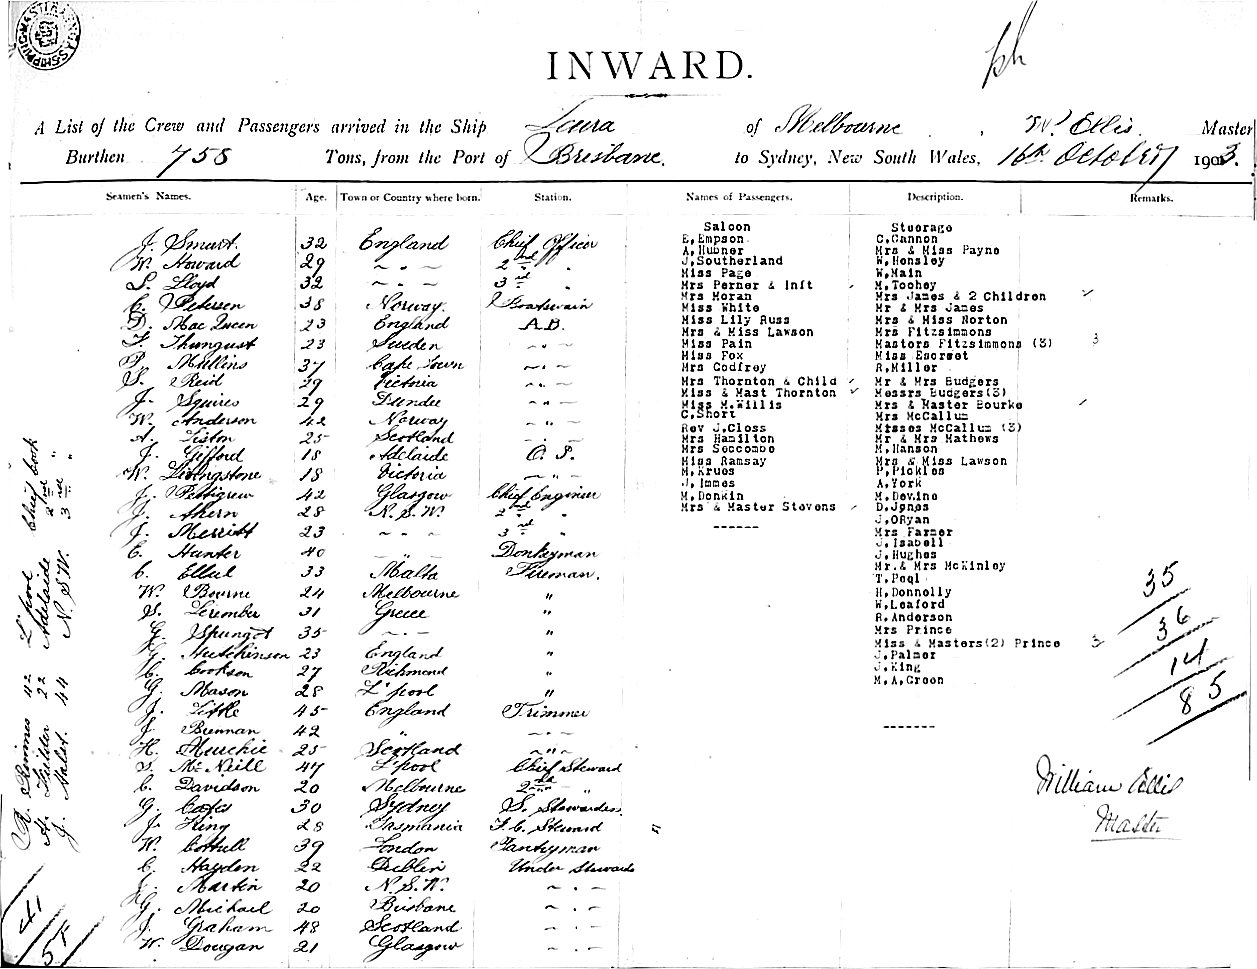 INWARD.
A List of the Crew and Passengers arrived in the Ship Laura of Melbourne, W. Ellis. Master
Burthen 758 Tons, from the Port of Brisbane. to Sydney, New South Wales, 16th October 1903.
Seamen's Names. Age. Town or Country where born. Station. Names of Passengers. Description. Remarks.
J. Smart. 32 England Chief Officer
W. Howard 29 ~ . ~ 2nd "
S. Lloyd 32 ~ . ~ 3rd "
C. Petersen 38 Norway. Boatswain
D. Mac Queen 23 England A.B.
F. 23 Sweden ~ . ~
P. Mullins 37 Cape Town ~ . ~
S. Reid 29 Victoria ~ . ~
J. Squires 29 Dundee ~ . ~
W. Anderson 42 Norway ~ " ~
A. Liston 25 Scotland ~ . ~
J. Gifford 18 Adelaide O. S.
W. Livingstone 18 Victoria ~ " ~
J. Pettigrew 42 Glasgow Chief Engineer
J. Ahern 28 N.S.W. 2nd "
J. Merritt 23 ~ . ~ 3rd "
C. Hunter 40 ~ " ~ Donkeyman
C. Ellul 33 Malta Fireman.
W. Bourne 24 Melbourne "
S. 31 Greece "
G. 35 ~ . ~ "
G. Hutchinson 23 England "
C. Cookson 27 Richmond "
G. Mason 28 L'pool "
J. Little 45 England Trimmer
J. Brennan 42 " ~ . ~
H. Murchie 25 Scotland ~ " ~
S. McNeill 47 L'pool Chief Steward
C. Davidson 20 Melbourne 2nd "
G. 30 Sydney S. Stewardess
J. King 28 Tasmania F.C. Steward
W. Cottrell 39 London Pantryman
C. Hayden 22 Dublin Under Stewards
J. Martin 20 N.S.W. ~ . ~
G. Michael 20 Brisbane ~ . ~
J. Graham 48 Scotland ~ . ~
W. Dougan 21 Glasgow ~ . ~
R. Rimmer 42 L'pool Chief Cook
A. Fielder 22 Adelaide 2nd "
J. 44 N.S.W. 3rd "
41
54
Saloon
E.Empson
A.Hubner
J.Southerland
Miss Page
Mrs Perner & Inft
Mrs Moran
Miss White
Miss Lily Russ
Mrs & Miss Lawson
Miss Pain
Miss Fox
Mrs Godfrey
Mrs Thornton & Child
Miss & Mast Thornton
Miss M.Willis
C.Short
Rev J.Closs
Mrs Hamilton
Mrs Seccombe
Miss Ramsay
M.Krues
J.Immes
M.Donkin
Mrs & Master Stevens
------
Steerage
C.Cannon
Mrs & Miss Payne
W.Hensley
W.Main
M.Toohey
Mrs James & 2 Children
Mr & Mrs James
Mrs & Miss Norton
Mrs Fitzsimmons
Masters Fitzsimmons (3) 3
Miss Escreet
R.Miller
Mr & Mrs Budgers
Messrs Budgers(3)
Mrs & Master Bourke
Mrs McCallum
Misses McCallum (3)
Mr & Mrs Mathews
M.Hanson
Mrs & Miss Lawson
P.Pickles
A.York
M.Devine
D.Jones
J.ORyan
Mrs Farmer
J.Isabell
J.Hughes
Mr.& Mrs McKinley
T.Peel
H.Donnolly
W.Leaford
R.Anderson
Mrs Prince
Miss & Masters(2) Prince 3
J.Palmer
J.King
M.A.Green
------
35
36
14
85
William Ellis
Master